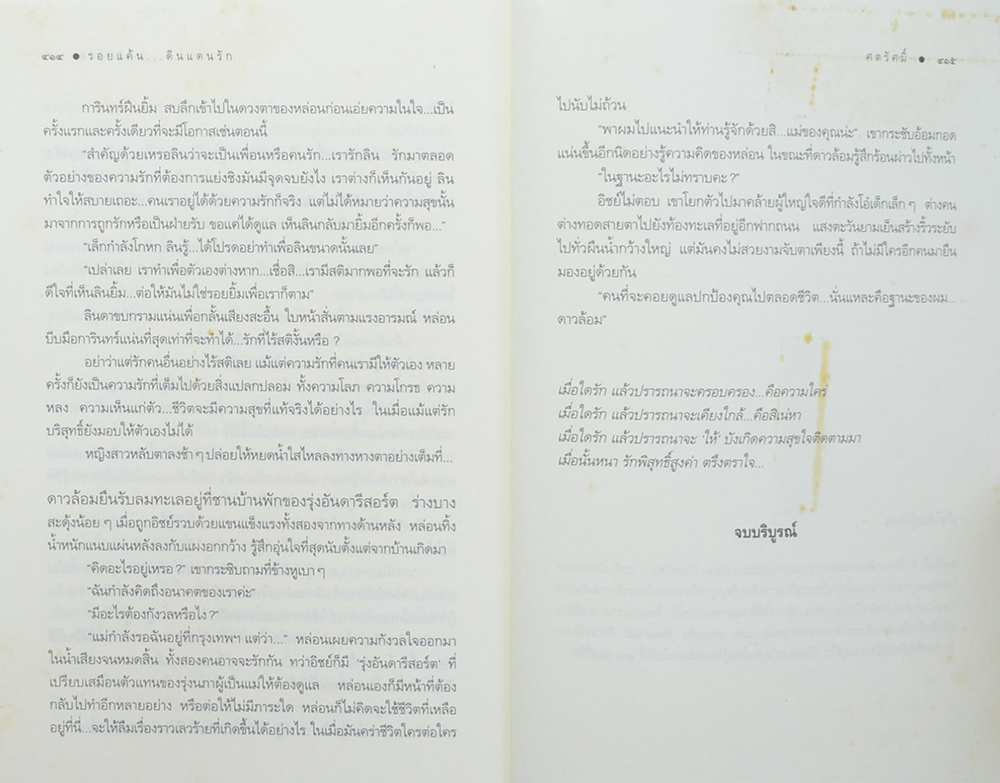 ๔๑๔ ● รอยแค้น...ดินแดนรัก
การินทร์ฝืนยิ้ม สบลึกเข้าไปในดวงตาของหล่อนก่อนเอ่ยความในใจ...เป็น
ครั้งแรกและครั้งเดียวที่จะมีโอกาสเช่นตอนนี้
“สำคัญด้วยเหรอลินว่าจะเป็นเพื่อนหรือคนรัก...เรารักลิน รักมาตลอด
ตัวอย่างของความรักที่ต้องการแย่งชิงมันมีจุดจบยังไง เราต่างก็เห็นกันอยู่ ลิน
ทำใจให้สบายเถอะ...คนเราอยู่ได้ด้วยความรักก็จริง แต่ไม่ได้หมายความว่าความสุขนั้น
มาจากการถูกรักหรือเป็นฝ่ายรับ ขอแค่ได้ดูแล เห็นลินกลับมายิ้มอีกครั้งก็พอ...”
“เล็กกำลังโกหก ลินรู้...ได้โปรดอย่าทำเพื่อลินขนาดนั้นเลย”
“เปล่าเลย เราทำเพื่อตัวเองต่างหาก...เชื่อสิ...เรามีสติมากพอที่จะรัก แล้วก็
ดีใจที่เห็นลินยิ้ม...ต่อให้มันไม่ใช่รอยยิ้มเพื่อเราก็ตาม”
ลินดาขบกรามแน่นเพื่อกลั้นเสียงสะอื้น ใบหน้าสั่นตามแรงอารมณ์ หล่อน
บีบมือการินทร์แน่นที่สุดเท่าที่จะทำได้...รักที่ไร้สติงั้นหรือ ?
อย่าว่าแต่รักคนอื่นอย่างไร้สติเลย แม้แต่ความรักที่คนเรามีให้ตัวเอง หลาย
ครั้งก็ยังเป็นความรักที่เต็มไปด้วยสิ่งแปลกปลอม ทั้งความโลภ ความโกรธ ความ
หลง ความเห็นแก่ตัว...ชีวิตจะมีความสุขที่แท้จริงได้อย่างไร ในเมื่อแม้แต่รัก
บริสุทธิ์ยังมอบให้ตัวเองไม่ได้
หญิงสาวหลับตาลงช้า ๆ ปล่อยให้หยดน้ำใสไหลลงทางหางตาอย่างเต็มที่...
ดาวล้อมยืนรับลมทะเลอยู่ที่ชานบ้านพักของรุ่งอันดารีสอร์ต ร่างบาง
สะดุ้งน้อย ๆ เมื่อถูกอิชย์รวบด้วยแขนแข็งแรงทั้งสองจากทางด้านหลัง หล่อนทิ้ง
น้ำหนักแนบแผ่นหลังลงกับแผงอกกว้าง รู้สึกอุ่นใจที่สุดนับตั้งแต่จากบ้านเกิดมา
“คิดอะไรอยู่เหรอ ?” เขากระซิบถามที่ข้างหูเบา ๆ
“ฉันกำลังคิดถึงอนาคตของเราค่ะ”
“มีอะไรต้องกังวลหรือไง ?”
“แม่กำลังรอฉันอยู่ที่กรุงเทพฯ แต่ว่า...” หล่อนเผยความกังวลใจออกมา
ในน้ำเสียงจนหมดสิ้น ทั้งสองคนอาจจะรักกัน ทว่าอิชย์ก็มี ‘รุ่งอันดารีสอร์ต’ ที่
เปรียบเสมือนตัวแทนของรุ่งนภาผู้เป็นแม่ให้ต้องดูแล หล่อนเองก็มีหน้าที่ต้อง
กลับไปทำอีกหลายอย่าง หรือต่อให้ไม่มีภาระใด หล่อนก็ไม่คิดจะใช้ชีวิตที่เหลือ
อยู่ที่นี่...จะให้ลืมเรื่องราวเลวร้ายที่เกิดขึ้นได้อย่างไร ในเมื่อมันคร่าชีวิตใครต่อใคร
ศตรัศมิ์ ● ๔๑๕
ไปนับไม่ถ้วน
“พาผมไปแนะนำให้ท่านรู้จักด้วยสิ...แม่ของคุณน่ะ” เขากระชับอ้อมกอด
แน่นขึ้นอีกนิดอย่างรู้ความคิดของหล่อน ในขณะที่ดาวล้อมรู้สึกร้อนผ่าวไปทั้งหน้า
“ในฐานะอะไรไม่ทราบคะ ?”
อิชย์ไม่ตอบ เขาโยกตัวไปมาคล้ายผู้ใหญ่ใจดีที่กำลังโอ๋เด็กเล็ก ๆ ต่างคน
ต่างทอดสายตาไปยังท้องทะเลที่อยู่อีกฟากถนน แสงตะวันยามเย็นสร้างริ้วระยับ
ไปทั่วผืนน้ำกว้างใหญ่ แต่มันคงไม่สวยงามจับตาเพียงนี้ ถ้าไม่มีใครอีกคนมายืน
มองอยู่ด้วยกัน
“คนที่จะคอยดูแลปกป้องคุณไปตลอดชีวิต...นั่นแหละคือฐานะของผม...
ดาวล้อม”
เมื่อใดรัก แล้วปรารถนาจะครอบครอง...คือความใคร่
เมื่อใดรัก แล้วปรารถนาจะเคียงใกล้...คือสิเน่หา
เมื่อใดรัก แล้วปรารถนาจะ ‘ให้’ บังเกิดความสุขใจติดตามมา
เมื่อนั้นหนา รักพิสุทธิ์สูงค่า ตรึงตราใจ...
จบบริบูรณ์